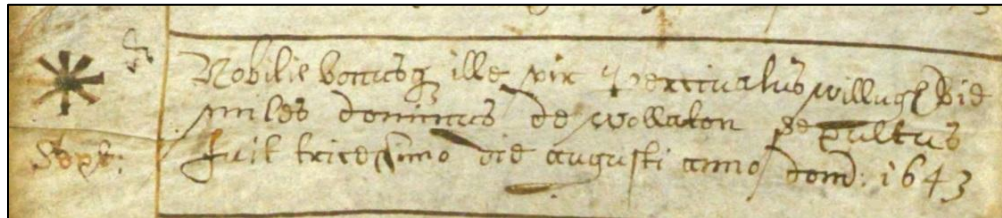 Nobilis bonusq ille vir Percivalus Willughbie
miles dominus de Wollaton Sepultus
Sept: fuit tricessimo die Augusti anno dom: 1643